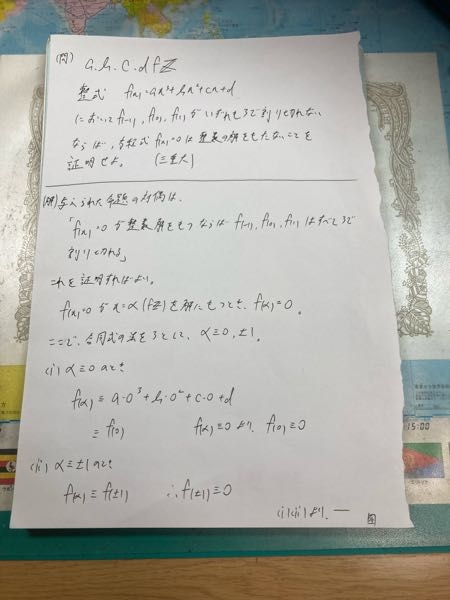 (問) a, b, c, d ∈ ℤ
整式 f(x)=ax³+bx²+cx+d
において f(-1), f(0), f(1) がいずれも3で割り切れない
ならば、方程式 f(x)=0は整数の解をもたないことを
証明せよ。 (三重大)
(解) 与えられた命題の対偶は、
「f(x)=0が整数解をもつならば f(-1), f(0), f(1) はすべて3で
割り切れる」
これを証明すればよい。
f(x)=0がx=α(∈ℤ)を解にもつとき、f(α)=0。
ここで、合同式の法を3として、α≡0, ±1。
(i) α≡0のとき
f(α)≡a・0³+b・0²+c・0+d
≡f(0) f(α)≡0より、f(0)≡0
(ii) α≡±1のとき
f(α)≡f(±1) ∴f(±1)≡0
(i)(ii)より、―
15:00